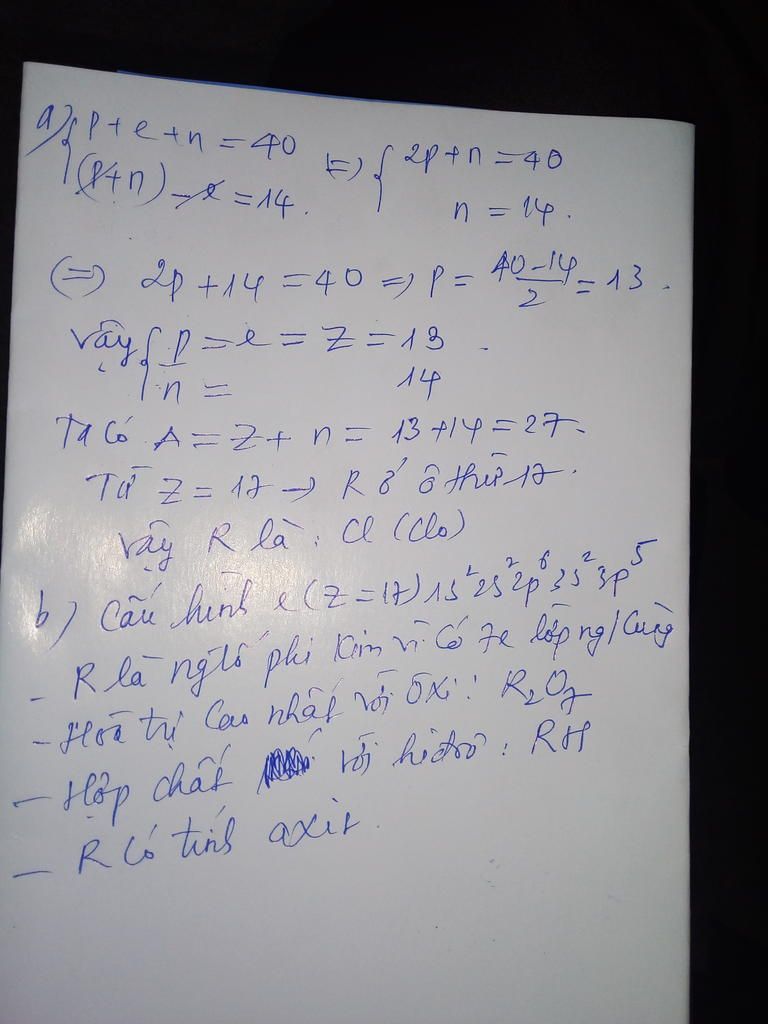 a) { p + e + n = 40 (=) { 2p + n = 40
(p+n) - e = 14. n = 14.
(=) 2p + 14 = 40 => p = (40-14)/2 = 13.
Vậy { p = e = Z = 13.
n = 14
Ta có A = Z + n = 13 + 14 = 27.
Từ Z = 17 → R ở ô thứ 17.
Vậy R là: Cl (Clo)
b) Cấu hình e (Z = 17) 1s² 2s² 2p⁶ 3s² 3p⁵
- R là ngtố phi kim vì có 7e lớp ng/cùng
- Hoá trị cao nhất với Oxi: R₂O₇
- Hợp chất với hiđrô: RH
- R có tính axit.